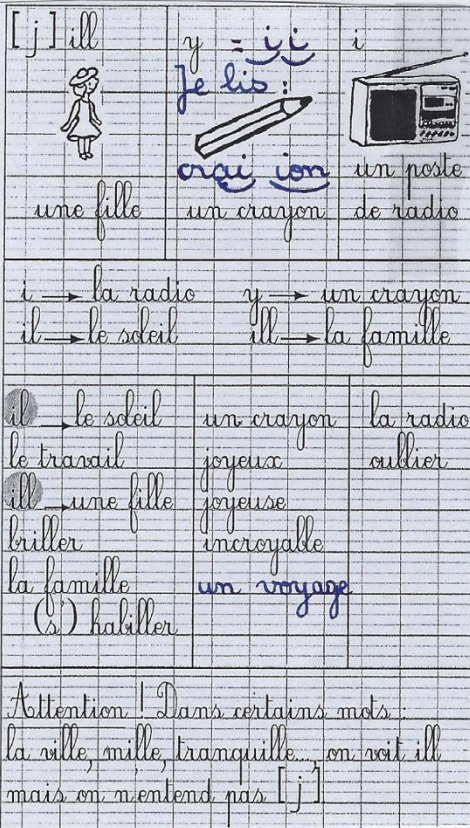 [j] ill
une fille
y = ii
Je lis :
crai ion
un crayon
i
un poste
de radio
i → la radio
y → un crayon
il → le soleil
ill → la famille
il → le soleil
le travail
ill → une fille
briller
la famille
(s') habiller
un crayon
joyeux
joyeuse
incroyable
un voyage
la radio
oublier
Attention ! Dans certains mots :
la ville, mille, tranquille..., on voit ill
mais on n'entend pas [j]